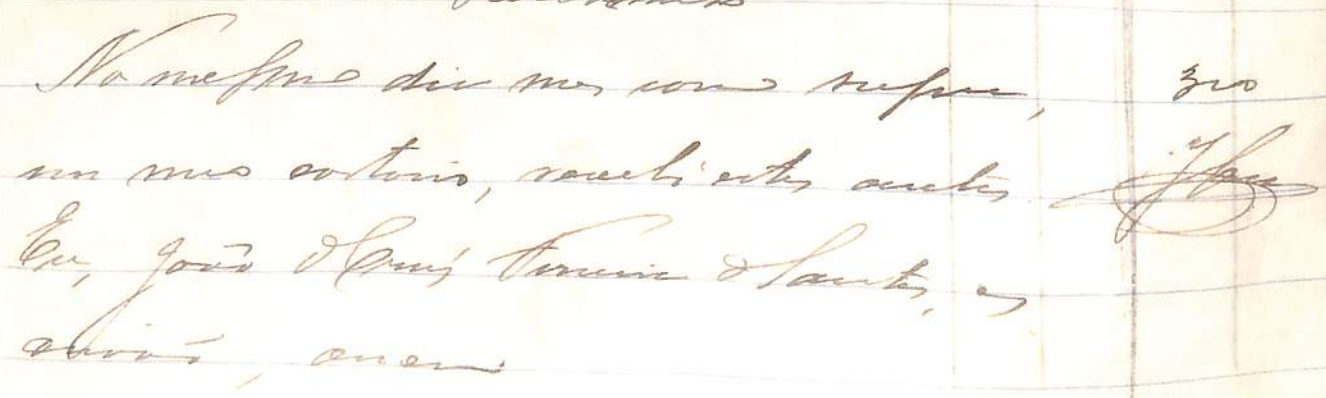 No mesmo dia mes
em meu cartorio, recebi estes autos
Eu, João da Cruz Ferreira d Santos, es
crivão, escrevi